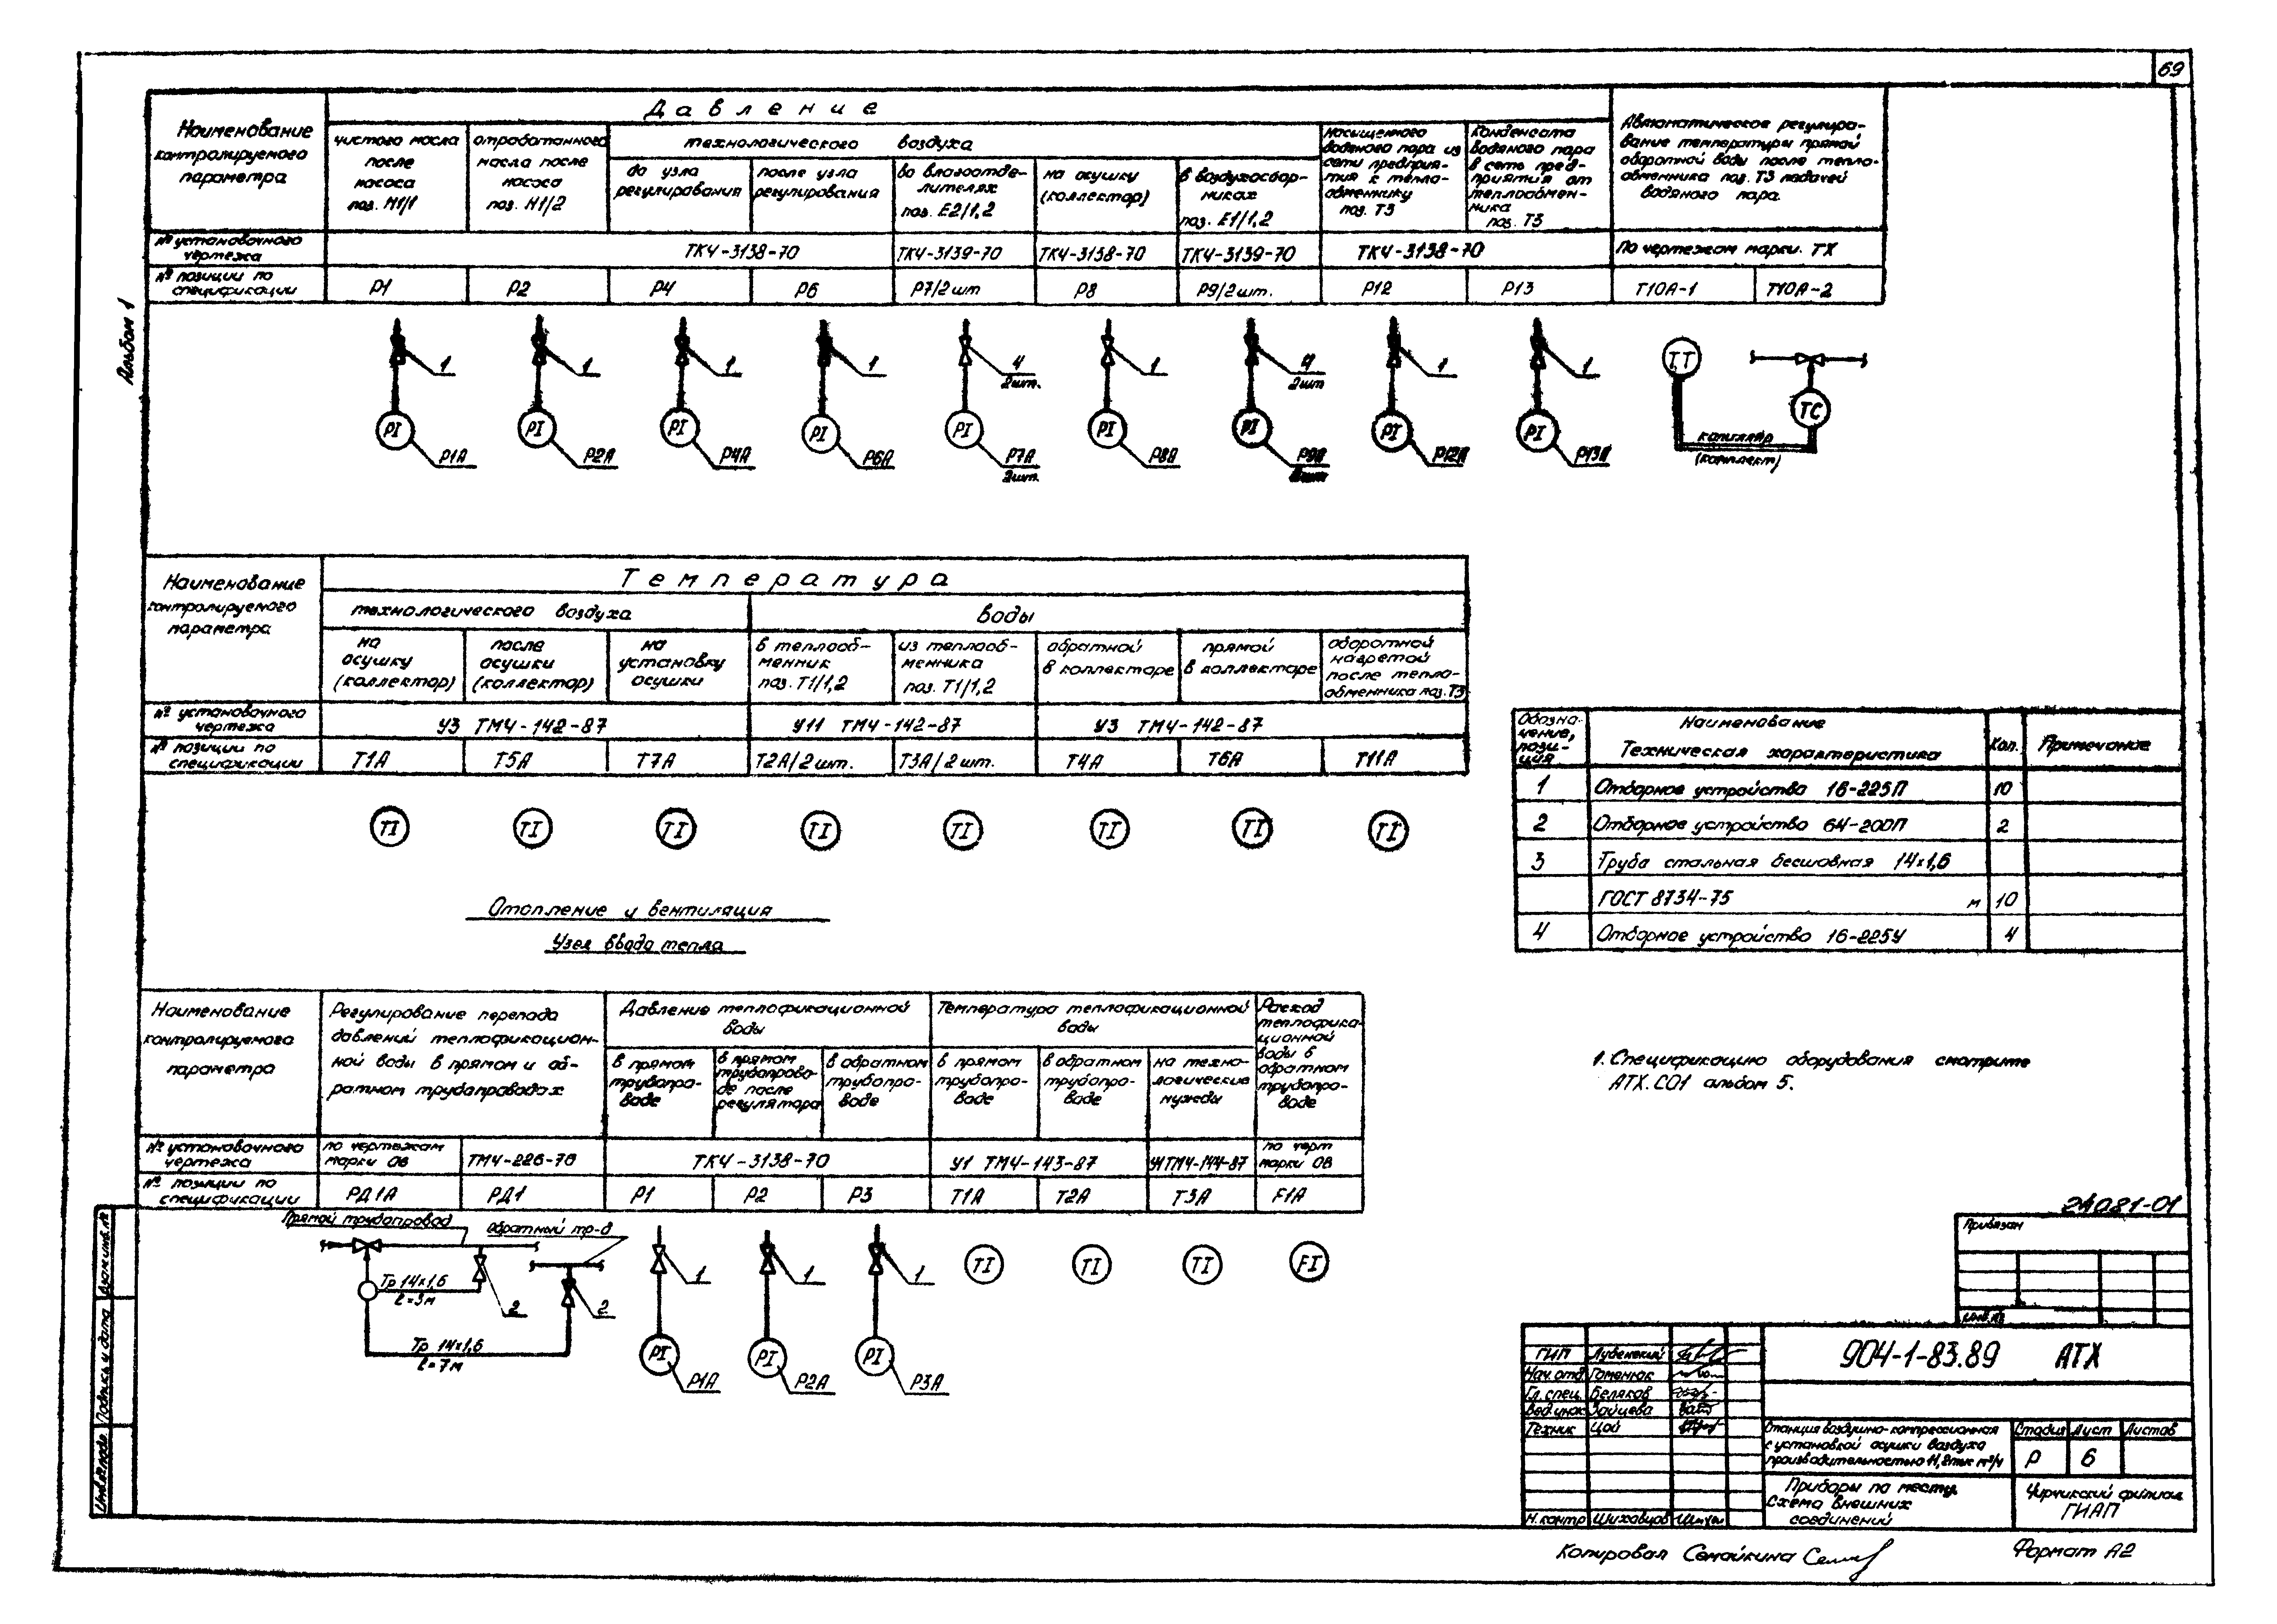 69
Альбом 1
Наименование контролируемого параметра
Давление
чистого масла после насоса поз. Н1/1
отработанного масла после насоса поз. Н1/2
технологического воздуха
до узла регулирования
после узла регулирования
во влагоотделителях поз. Е2/1,2
на осушку (коллектор)
в воздухосборниках поз. Е1/1,2
насыщенного водяного пара из сети предприятия к теплообменнику поз. Т3
конденсата водяного пара в сеть предприятия от теплообменника поз. Т3
Автоматическое регулирование температуры прямой оборотной воды после теплообменника поз. Т3 подачей водяного пара.
№ установочного чертежа
ТКЧ-3138-70
ТКЧ-3139-70
ТКЧ-3138-70
ТКЧ-3139-70
ТКЧ-3138-70
По чертежам марки ТХ
№ позиции по спецификации
Р1
Р2
Р4
Р6
Р7/2шт
Р8
Р9/2шт.
Р12
Р13
Т10А-1
Т10А-2
1
1
1
1
4
2шт.
1
4
2шт
1
1
PI
PI
PI
PI
PI
PI
PI
PI
PI
TT
TC
капилляр
(комплект)
Р1А
Р2А
Р4А
Р6А
Р7А
2шт.
Р8А
Р9А
2шт
Р12А
Р13А
Наименование контролируемого параметра
Температура
технологического воздуха
воды
на осушку (коллектор)
после осушки (коллектор)
на установку осушки
в теплообменник поз. Т1/1,2
из теплообменника поз. Т1/1,2
обратной в коллекторе
прямой в коллекторе
оборотной нагретой после теплообменника поз. Т3
№ установочного чертежа
У3 ТМЧ-142-87
У11 ТМЧ-142-87
У3 ТМЧ-142-87
№ позиции по спецификации
Т1А
Т5А
Т7А
Т2А/2шт.
Т3А/2шт.
Т4А
Т6А
Т11А
TI
TI
TI
TI
TI
TI
TI
TI
Обозначение, позиция
Наименование
Техническая характеристика
Кол.
Примечание
1 Отборное устройство 16-225П 10
2 Отборное устройство 64-200П 2
3 Труба стальная бесшовная 14х1,6
ГОСТ 8734-75 м 10
4 Отборное устройство 16-225У 4
Отопление и вентиляция
Узел ввода тепла
Наименование контролируемого параметра
Регулирование перепада давлений теплофикационной воды в прямом и обратном трубопроводах
Давление теплофикационной воды
в прямом трубопроводе
в прямом трубопроводе после регулятора
в обратном трубопроводе
Температура теплофикационной воды
в прямом трубопроводе
в обратном трубопроводе
на технологические нужды
Расход теплофикационной воды в обратном трубопроводе
№ установочного чертежа
по чертежам марки ОВ
ТМЧ-226-76
ТКЧ-3138-70
У1 ТМЧ-143-87
У1ТМЧ-144-87
по черт марки ОВ
№ позиции по спецификации
РД1А
РД1
Р1
Р2
Р3
Т1А
Т2А
Т3А
F1А
Прямой трубопровод
Обратный тр-д
Тр 14х1,6
ℓ=3м
2
2
Тр 14х1,6
ℓ=7м
1
1
1
PI
PI
PI
Р1А
Р2А
Р3А
TI
TI
TI
FI
1. Спецификацию оборудования смотрите
АТХ.СО1 альбом 5.
24081-01
Привязан
Инв.№
904-1-83.89 АТХ
ГИП Лубенский
Нач. отд. Гоменюк
Гл. спец. Беляков
Вед.инж. Зайцева
Техник Цой
Н.контр Шиховцов
Станция воздушно-компрессионная
с установкой осушки воздуха
производительностью 11,2тыс м³/ч
Стадия Лист Листов
Р 6
Приборы по месту.
Схема внешних
соединений
Чирчикский филиал
ГИАП
Копировал Самойкина
Формат А2
Инв.№подл.
Подпись и дата
Взам.инв.№